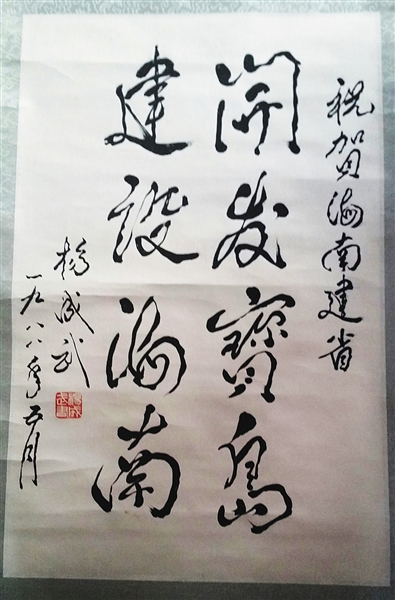 祝贺海南建省
開发寶島
建设海南
楊成武
一九八八年五月